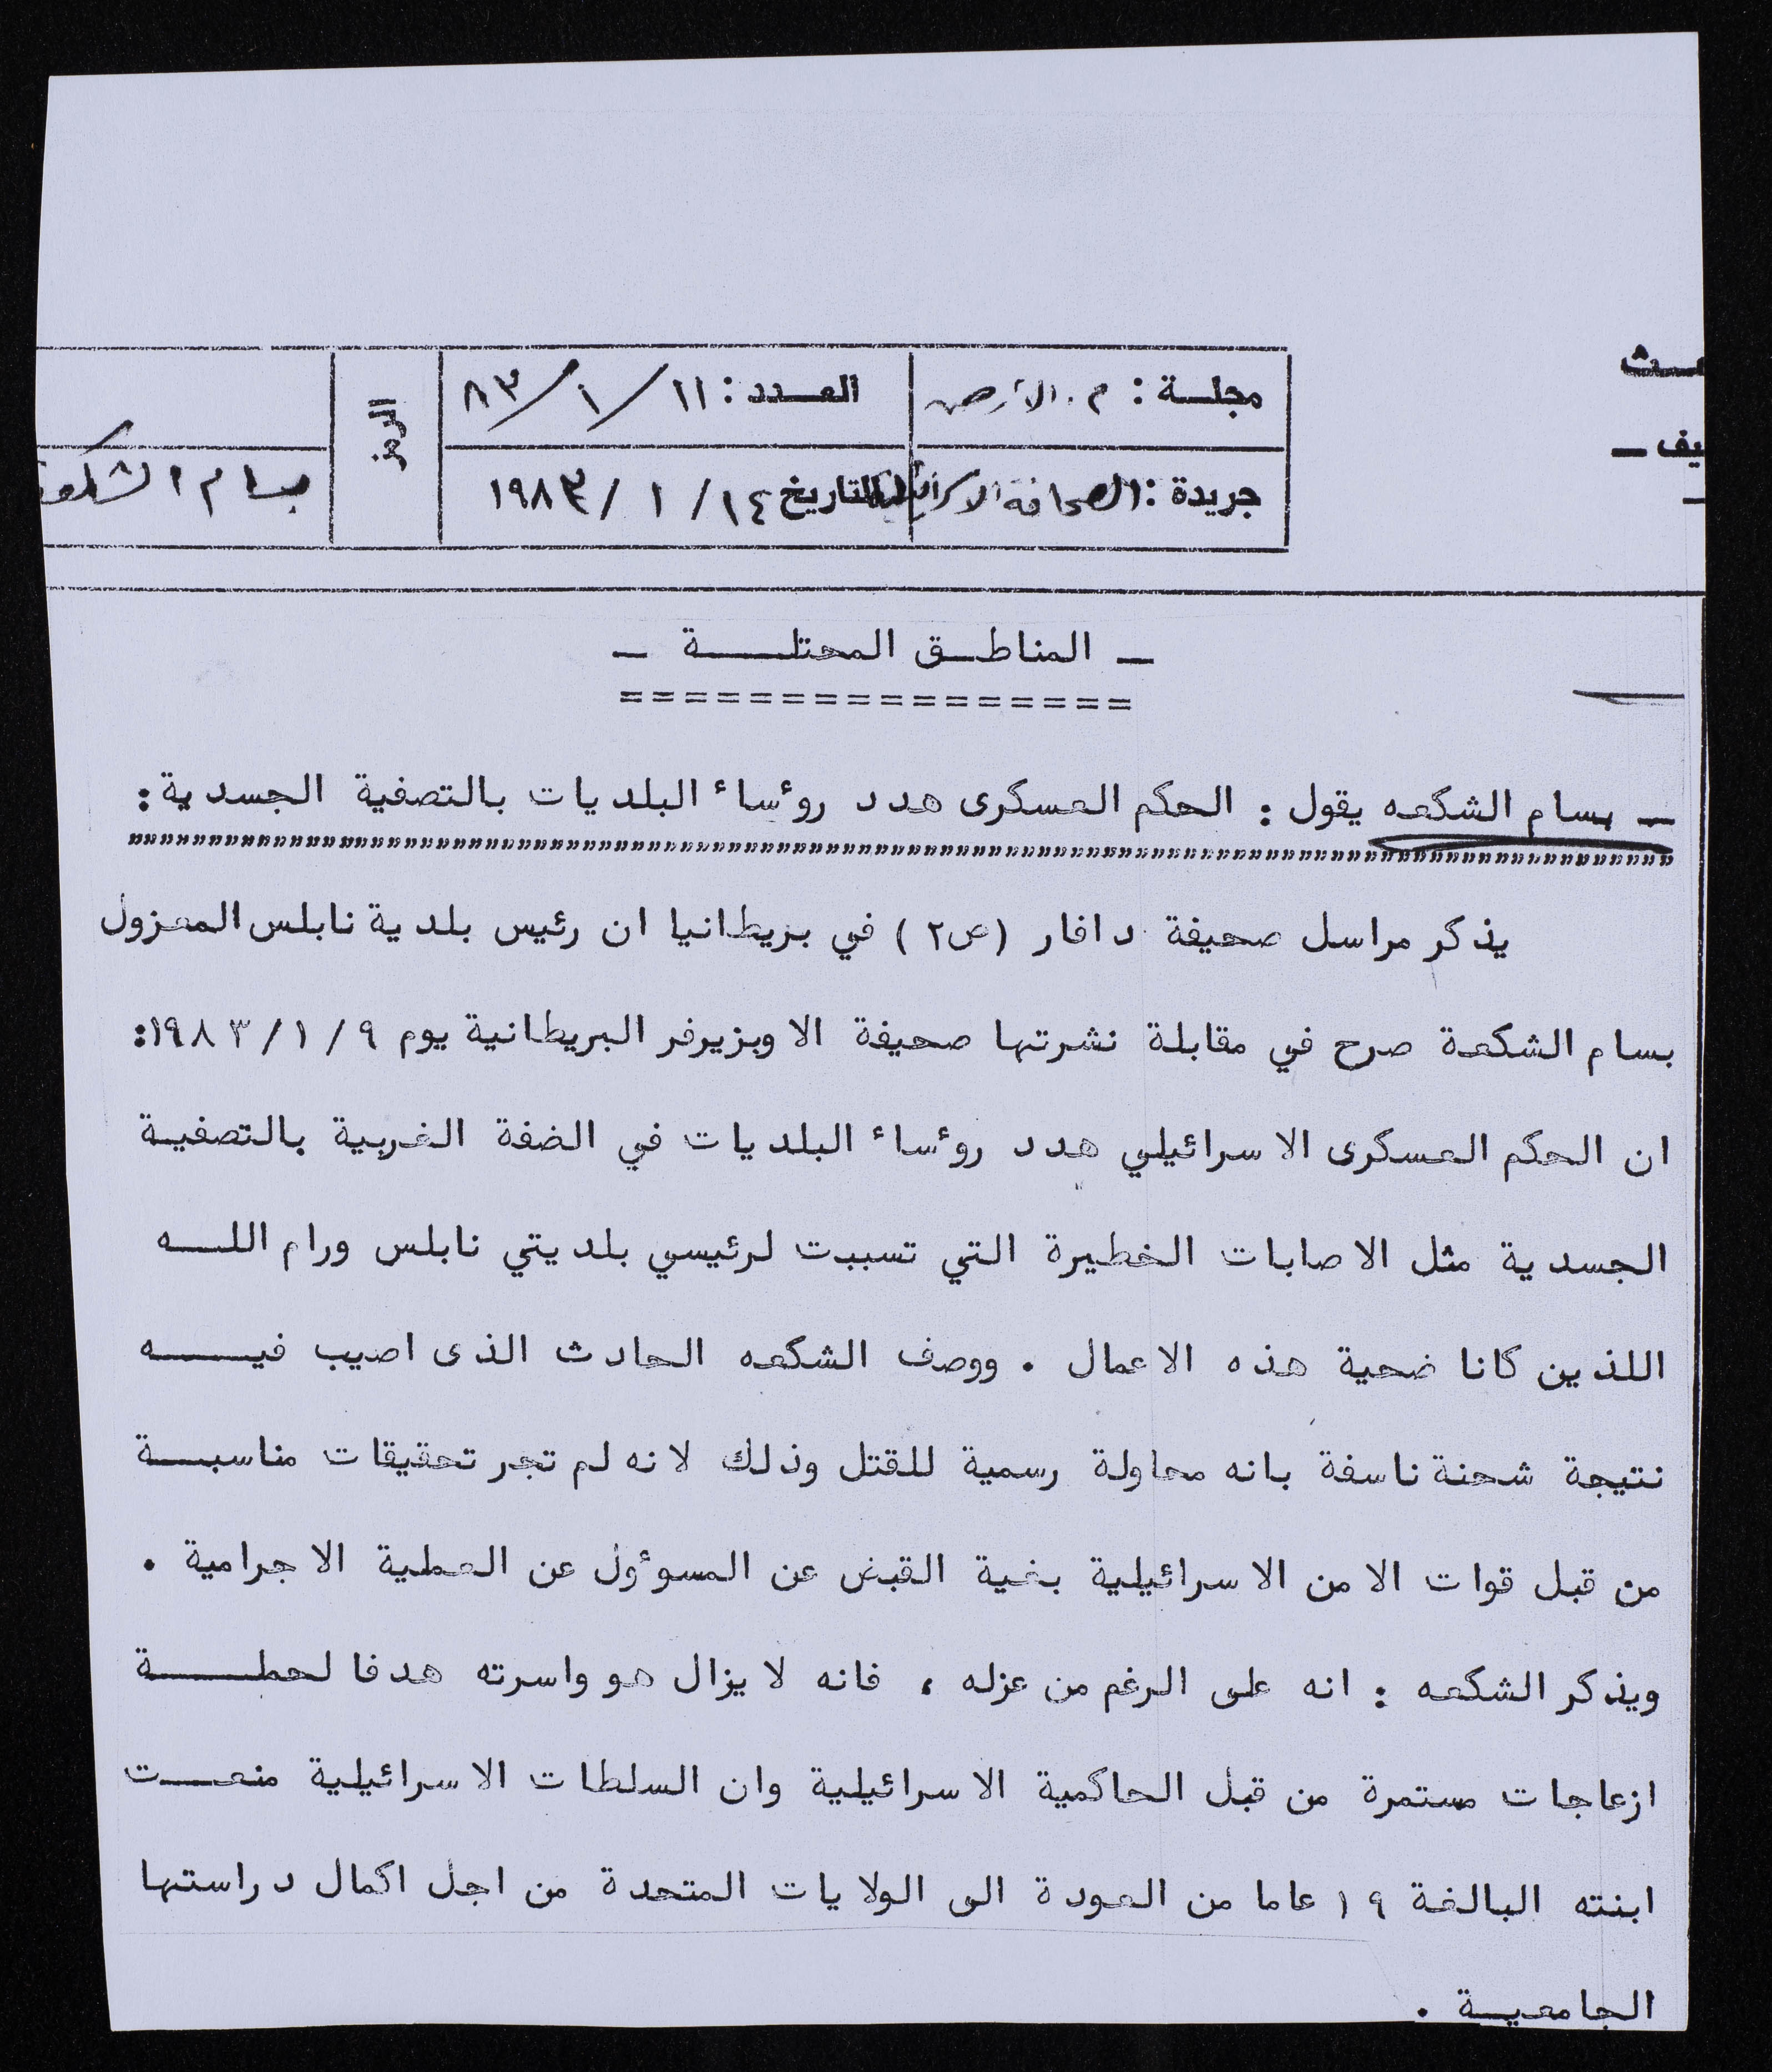 ـث
يف ـ
مجلـة : م. الأرض
العـدد : ١١ / ١ / ٨٣
الرمز
جريدة : الصحافة الاسرائيلية
التاريخ ١٤ / ١ / ١٩٨٣
بسام الشكعة
ـ المناطـق المحتلـــة ـ
================
ـ بسام الشكعه يقول : الحكم العسكرى هدد روٴساء البلديات بالتصفية الجسدية :
يذكر مراسل صحيفة دافار (ص٢) في بريطانيا ان رئيس بلدية نابلس المعزول
بسام الشكعة صرح في مقابلة نشرتها صحيفة الاوبزيرفر البريطانية يوم ٩ /١ /١٩٨٣:
ان الحكم العسكرى الاسرائيلي هدد روٴساء البلديات في الضفة الغربية بالتصفيـة
الجسدية مثل الاصابات الخطيرة التي تسببت لرئيسي بلديتي نابلس ورام اللـــه
اللذين كانا ضحية هذه الاعمال . ووصف الشكعه الحادث الذى اصيب فيــــه
نتيجة شحنة ناسفة بانه محاولة رسمية للقتل وذلك لانه لم تجر تحقيقات مناسبـــة
من قبل قوات الامن الاسرائيلية بغية القبض عن المسوٴول عن العملية الاجرامية .
ويذكر الشكعه : انه على الرغم من عزله ، فانه لا يزال هو واسرته هدفا لحطـــــة
ازعاجات مستمرة من قبل الحاكمية الاسرائيلية وان السلطات الاسرائيلية منعـــت
ابنته البالغة ١٩ عاما من العودة الى الولايات المتحدة من اجل اكمال دراستها
الجامعيـــة .